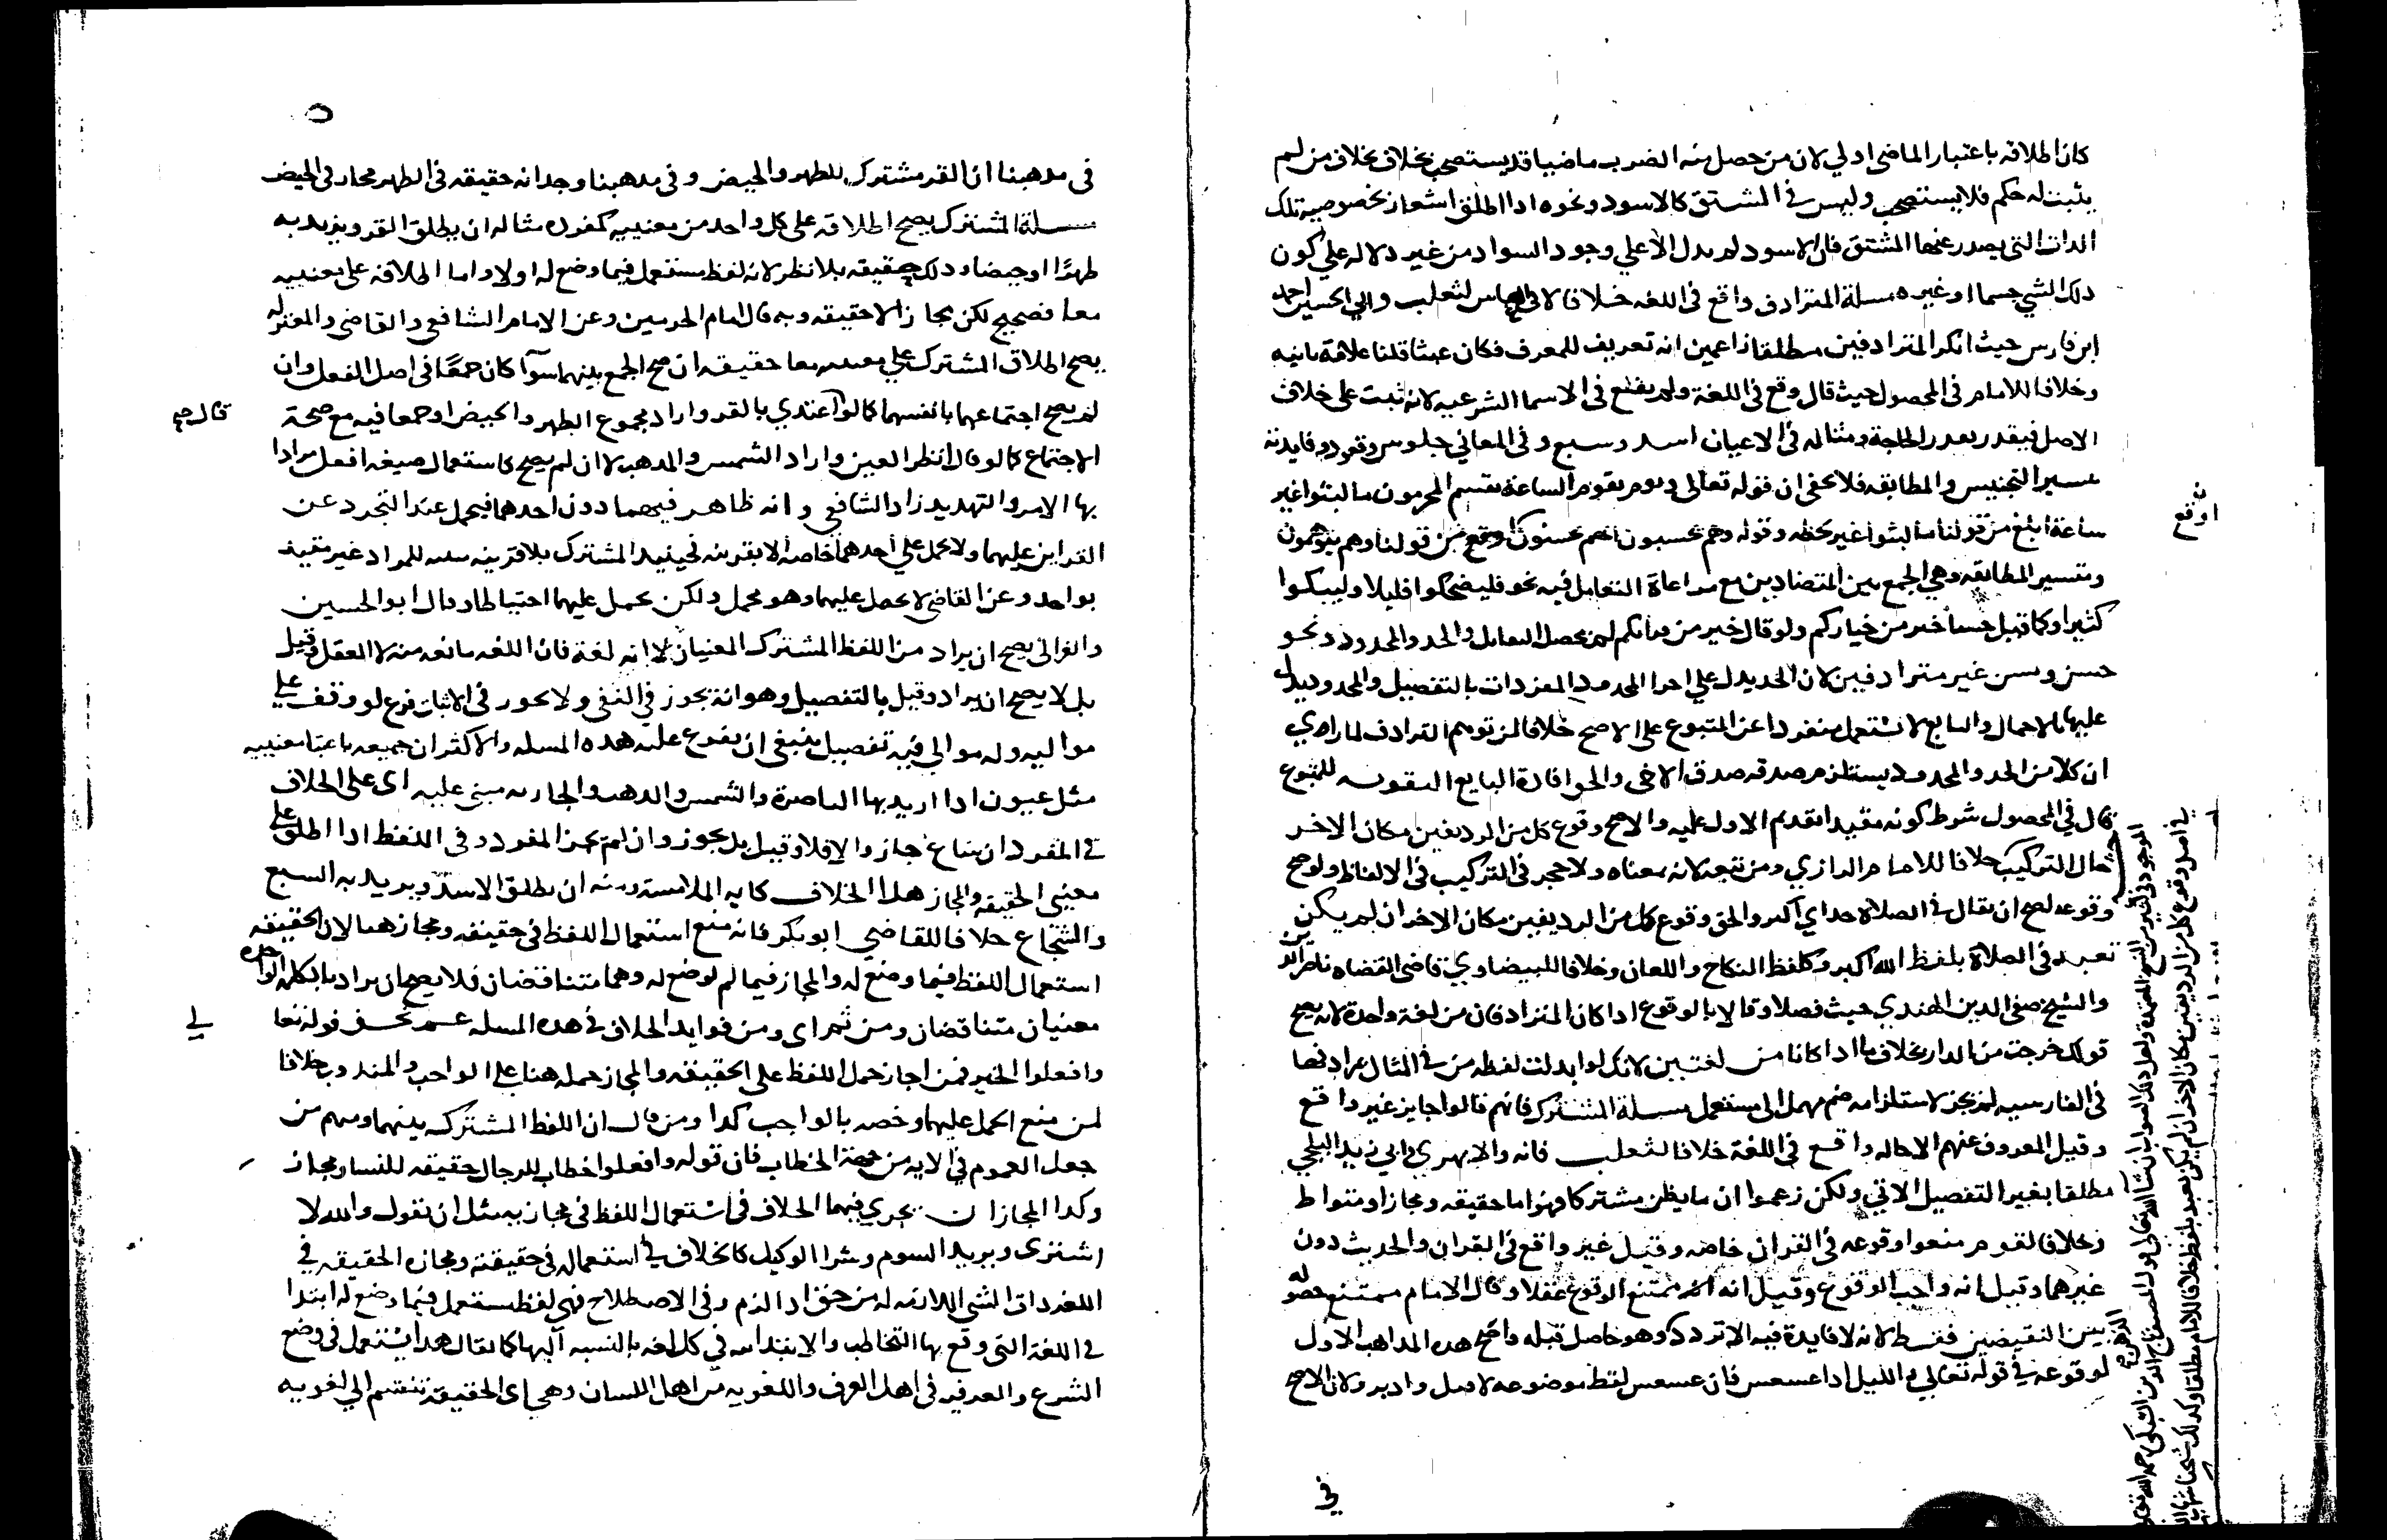 كان اطلاقه باعتبار الماضي اولي لان من حصل منه الضرب ماضيا قد يستصحب بخلاف من لم
يثبت له حكم فلا يستصحب وليس في المشتق كالاسود ونحوه اذا اطلق اشعار بخصوصية تلك
الذات التي يصدر عنها المشتق فان الاسود لم يدل الا علي وجود السواد من غير دلاله علي كون
ذلك الشي جسما او غيره مسلة المترادف واقع في اللغه خلافا لابي العباس لثعلب وابي الحسين احمد
ابن فارس حيث انكر المترادفين مطلقا زاعمين انه تعريف للمعرف فكان عبثا قلنا علامة ثانيه
وخلافا للامام في المحصول حيث قال وقع في اللغة ولم يقع في الاسما الشرعيه لانه ثبت على خلاف
الاصل فيقدر بقدر الحاجة ومثاله في الاعيان اسد وسبع وفي المعاني جلوس وقعود وفايدته
تيسير التجنيس والمطابقه فلا يخفى ان قوله تعالى ويوم تقوم الساعة يقسم المجرمون ما لبثوا غير
ساعة ابلغ من قولنا ما لبثوا غير لحظه وقوله وهم يحسبون انهم يحسنون من قولنا وهم يتوهمون
اوقع
وتيسير المطابقه وهي الجمع بين المتضادين مع مراعاة التقابل فيه نحو فليضحكوا قليلا وليبكوا
كثيرا وكما قيل خسنا خير من خياركم ولو قال خير من لم يحصل التقابل والحد والمحدود ونحو
حسن وبسن غير مترادفين لان الحد يدل علي اجزا المحدود المفردات بالتفصيل والمحدود يدل
عليها بالاجمال والتابع لا يستعمل منفردا عن المتبوع علي الاصح خلافا لمن توهم الترادف لما راي
ان كلا من الحد والمحدود يستلزم صدقه صدق الاخر والحق افادة التابع التقويه للمتبوع
قال في المحصول شرط كونه مفيدا تقدم الاول عليه والاصح وقوع كل من الرديفين مكان الاخر
حال التركيب خلافا للامام الرازي ومن تبعه لانه بمعناه ولا حجر في التركيب في الالفاظ ولو صح
وقوعه لصح ان يقال في الصلاة خداي اكبر والحق وقوع كل من الرديفين مكان الاخر ان لم يكن
تعبد في الصلاة بلفظ الله اكبر وكلفظ النكاح واللعان وخلافا للبيضاوي قاضي القضاه ناصر الدين
والشيخ صفي الدين الهندي حيث فصلا وقالا بالوقوع اذا كان المترادفان من لغة واحدة لانه يصح
قولك خرجت من الدار بخلاف ما اذا كانا من لغتين لانك لو ابدلت لفظه من في المثال بمرادفها
في الفارسيه لم يجز لاستلزامه ضم مهمل الى مستعمل مسلة المشترك فانهم قالوا جايز غير واقع
وقيل المعروف عنهم الاحاله واقع في اللغة خلافا لثعلب فانه والابهري وابي زيد البلخي
مطلقا بغير التفصيل الاتي ولكن زعموا ان ما يظن مشتركا فهو اما حقيقه ومجاز او متواط
وخلافا لقوم منعوا وقوعه في القران خاصه وقيل غير واقع في القران والحديث دون
غيرهما وقيل انه واجب الوقوع وقيل انه ممتنع الوقوع عقلا وقال الامام ممتنع حصوله
بين النقيضين فقط لانه لا فايدة فيه الا تردد وهو حاصل قبله واصح هذه المذاهب الاول
لوقوعه في قوله تعالي والليل اذا عسعس فان عسعس لفظ موضوعه لاقبل وادبر ولان الاصح
في
في مذهبنا ان القرء مشترك للطهر والحيض وفي مذهبنا وجد انه حقيقه في الطهر مجاز في الحيض
مسلة المشترك يصح اطلاقه على كل واحد من معنييه كمفرده مثاله ان يطلق القرء ويريد به
طهرا او حيضا وذلك حقيقه بلا نظر لانه لفظ مستعمل فيما وضع له اولا واما اطلاقه على معنييه
معا فصحيح لكن مجازا لا حقيقه وبه قال امام الحرمين وعن الامام الشافعي والقاضي والمعتزله
يصح اطلاق المشترك علي معنييه معا حقيقه ان صح الجمع بينهما سوآ كان جمعا في اصل الفعل وان
لم يصح اجتماعهما بانفسهما كما لو اعتدي بالقرء واراد مجموع الطهر والحيض او جمعا فيه مع صحة
الاجتماع كما لو قال انظر العين واراد الشمس والذهب لا ان لم يصح كاستعمال صيغه افعل مرادا
بها الامر والتهديد زاد الشافعي وانه ظاهر فيهما دون احدهما فيحمل عند التجرد عن
القراين عليهما ولا يحمل علي احدهما خاصه الا بقرينه فحينيذ المشترك بلا قرينه للمراد غير مقيد
بواحد وعن القاضي لا يحمل عليهما وهو مجمل ولكن يحمل عليهما احتياطا وقال ابو الحسين
والغزالي يصح ان يراد من اللفظ المشترك المعنيان لا انه لغة فان اللغه مانعه منه لا العقل وقيل
بل لا يصح ان يراد وقيل بالتفصيل وهو انه يجوز في النفي ولا يجوز في الاثبات فرع لو وقف علي
مواليه وله موالي فيه تفصيل ينبغي ان يفرع علي هذه المسله والاكثر ان جمعه باعتبار معنييه
مثل عيون اذا اريد بها الباصرة والشمس والذهب والجاريه مبني عليه اي على الخلاف
في المفرد ان ساغ جاز والا فلا وقيل بل يجوز وان لم يجز المفرد وفي اللفظ اذا اطلق علي
معنيي الحقيقه والمجاز هذا الخلاف كايه الملامسه ومنه ان يطلق الاسد ويريد به السبع
والشجاع خلافا للقاضي ابو بكر فانه منع استعمال اللفظ في حقيقته ومجاز هما لان الحقيقه
استعمال اللفظ فيما وضع له والمجاز فيما لم يوضع له وهما متناقضان فلا يصح ان يراد بالكلمه الواحده
معنيان متناقضان ومن ثم اى ومن فوايد الخلاف في هذه المسله عم نحو قوله تعالي
وافعلوا الخير فمن اجاز حمل اللفظ على الحقيقه والمجاز حمله هنا علي الواجب والمندوب خلافا
لمن منع الحمل عليهما وخصه بالواجب كذا ومن قال ان اللفظ المشترك بينهما ومنهم من
جعل العموم في الايه من جهة الخطاب فان قوله وافعلوا خطاب للرجال حقيقه للنسا مجاز
وكذا المجازان يجري فيهما الخلاف في استعمال اللفظ في مجازيه مثل ان تقول والله لا
اشتري ويريد السوم وشرا الوكيل كالخلاف في استعماله في حقيقته ومجازه الحقيقه في
اللغه ذات الشي اللازمه له من حق اذا لزم وفي الاصطلاح هي لفظ مستعمل فيما وضع له ابتدا
في اللغة التي وقع بها التخاطب والابتدا في كل لغه بالنسبه اليها كما يقال هذا يستعمل في وضع
الشرع والعرفيه في اهل العرف واللغويه من اهل اللسان وهي اى الحقيقه تنقسم الي لغويه